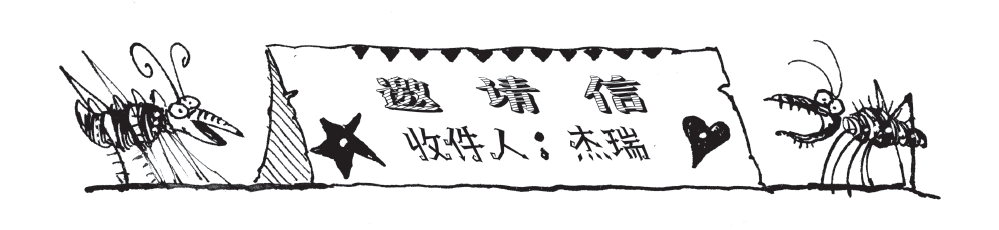 邀请信
收件人：杰瑞